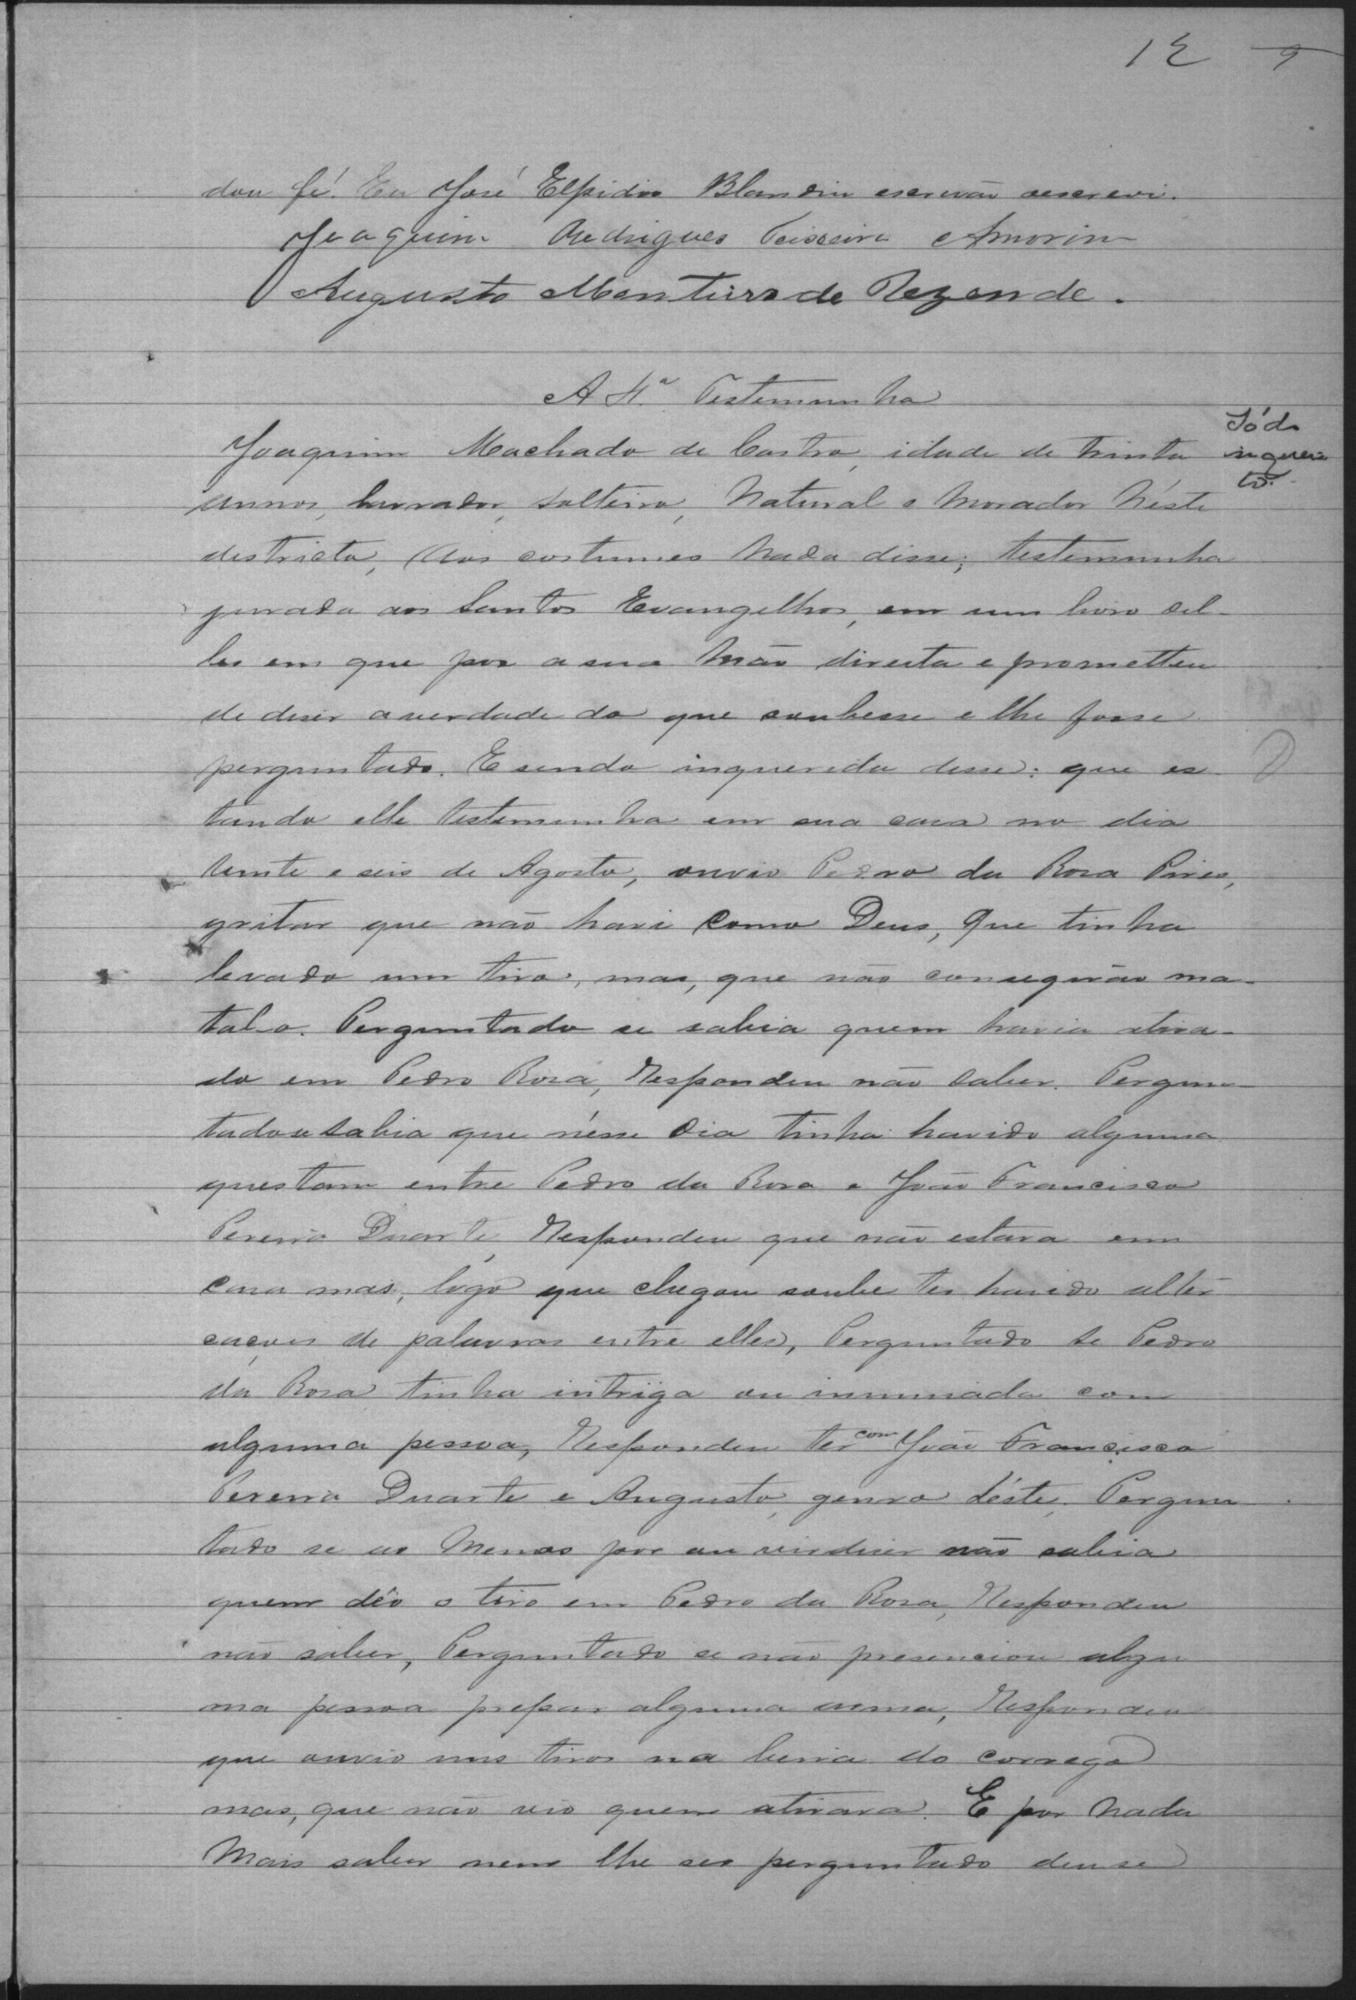 12 9
dou fé. Eu José Elpidio Blandin escrivão oescrevi.
Joaquim Rodrigues Teixeira Amorim
Augusto Monteiro de Rezende.
A 4.ª Testemunha
Joaquim Machado de Castro, idade de trinta
Só do
inqueri
to.
annos, lavrador, solteiro, Natural e Morador Néste
districto, Aos costumes Nada disse; testemunha
jurada aos Santos Evangelhos, em um livro del-
les em que poz a sua Mão direita e prometteu
de diser averdade do que soubesse e lhe fosse
perguntado. E sendo inquerida disse: que es-
tando elle testemunha em sua casa no dia
vinte e seis de Agosto, ouvio Pedro da Rosa Pires,
gritar que não havi como Deus, que tinha
levado um tiro, mas, que não conseguirão ma-
talo. Perguntado se sabia quem havia atira-
do em Pedro Rosa, Respondeu não saber. Pergun-
tadose sabia que nésse dia tinha havido alguma
questam entre Pedro da Rosa e João Francisco
Pereira Duarte, Respondeu que não estava em
casa mas, lógo que chegou soube ter havido alter
cações de palavras entre elles, Perguntado se Pedro
da Rosa tinha intriga ou inimisada com
alguma pessoa, Respondeu ter com João Francisco
Pereira Duarte e Augusto, genro déste, Pergun-
tado se ao Menos por ou virdiser não sabia
quem déo o tiro em Pedro da Rosa, Respondeu
não saber, Perguntado se não presenciou algu
ma pessoa prepar alguma arma, Respondeu
que ouvio uns tiros na beira do corrego
mas, que não vio quem atirara. E por Nada
Mais saber nem lhe ser perguntado deuse